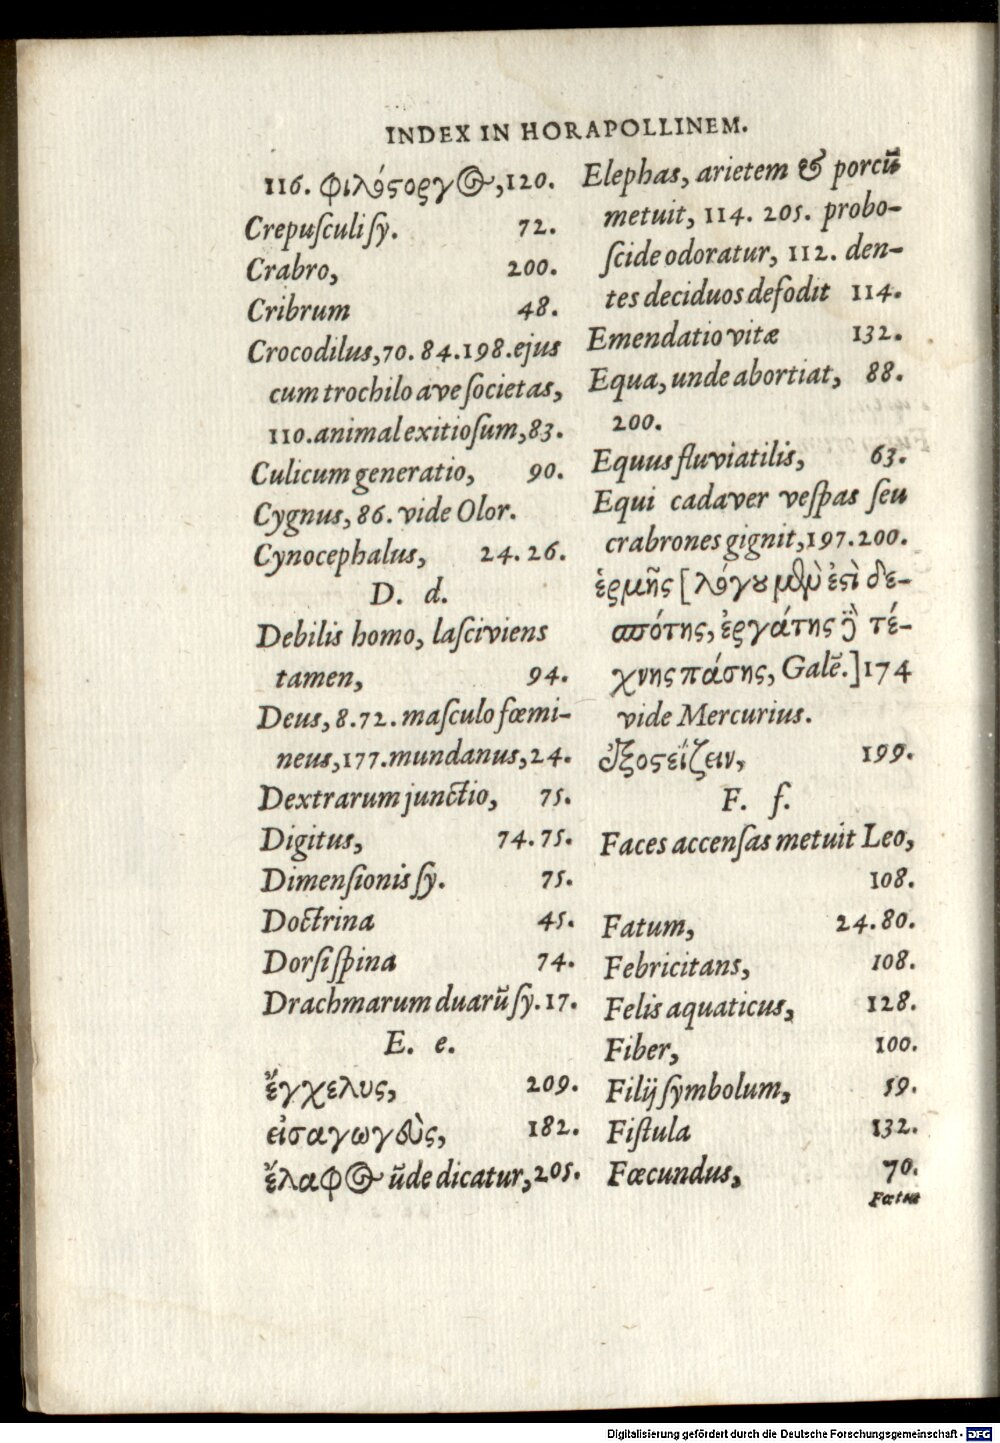 INDEX IN HORAPOLLINEM.
116. φιλόϛοργος, 120.
Crepuſculi ſy. 72.
Crabro, 200.
Cribrum 48.
Crocodilus, 70. 84. 198. ejus
cum trochilo ave ſocietas,
110. animal exitioſum, 83.
Culicum generatio, 90.
Cygnus, 86. vide Olor.
Cynocephalus, 24. 26.
D. d.
Debilis homo, laſciviens
tamen, 94.
Deus, 8. 72. maſculo fœmi-
neus, 177. mundanus, 24.
Dextrarum junctio, 75.
Digitus, 74. 75.
Dimenſionis ſy. 75.
Doctrina 45.
Dorſi ſpina 74.
Drachmarum duarũ ſy. 17.
E. e.
ἔγχελυς, 209.
εἰσαγωγεὺς, 182.
ἔλαφος ũde dicatur, 205.
Elephas, arietem & porcũ
metuit, 114. 205. probo-
ſcide odoratur, 112. den-
tes deciduos defodit 114.
Emendatio vitæ 132.
Equa, unde abortiat, 88.
200.
Equus fluviatilis, 63.
Equi cadaver veſpas ſeu
crabrones gignit, 197. 200.
ἑρμῆς [λόγου μὲν ἐϛὶ δε-
σπότης, ἐργάτης δὲ τέ-
χνης πάσης, Galẽ.] 174
vide Mercurius.
199.
F. f.
Faces accenſas metuit Leo,
108.
Fatum, 24. 80.
Febricitans, 108.
Felis aquaticus, 128.
Fiber, 100.
Filij ſymbolum, 59.
Fiſtula 132.
Fœcundus, 70.
Fœtus
Digitalisierung gefördert durch die Deutsche Forschungsgemeinschaft - DFG